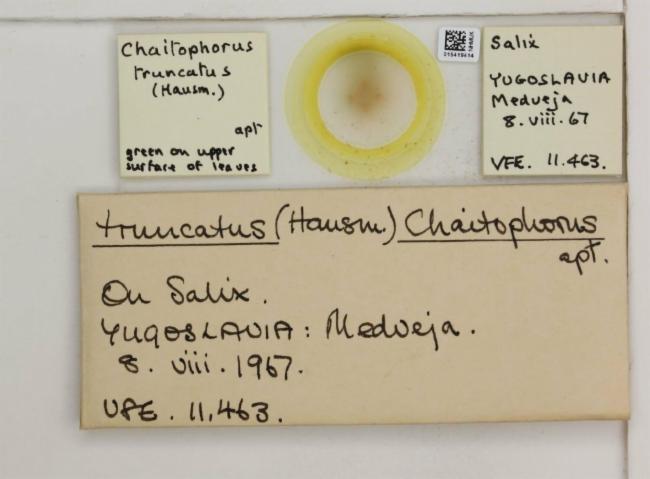 Chaitophorus
truncatus
(Hausm.)
apt
green on upper
surface of leaves
NHMUK
Salix
YUGOSLAVIA
Medveja
8.viii.67
VFE. 11.463.
truncatus (Hausm.) Chaitophorus
apt.
On Salix.
YUGOSLAVIA: Medveja.
8. viii. 1967.
VFE. 11.463.